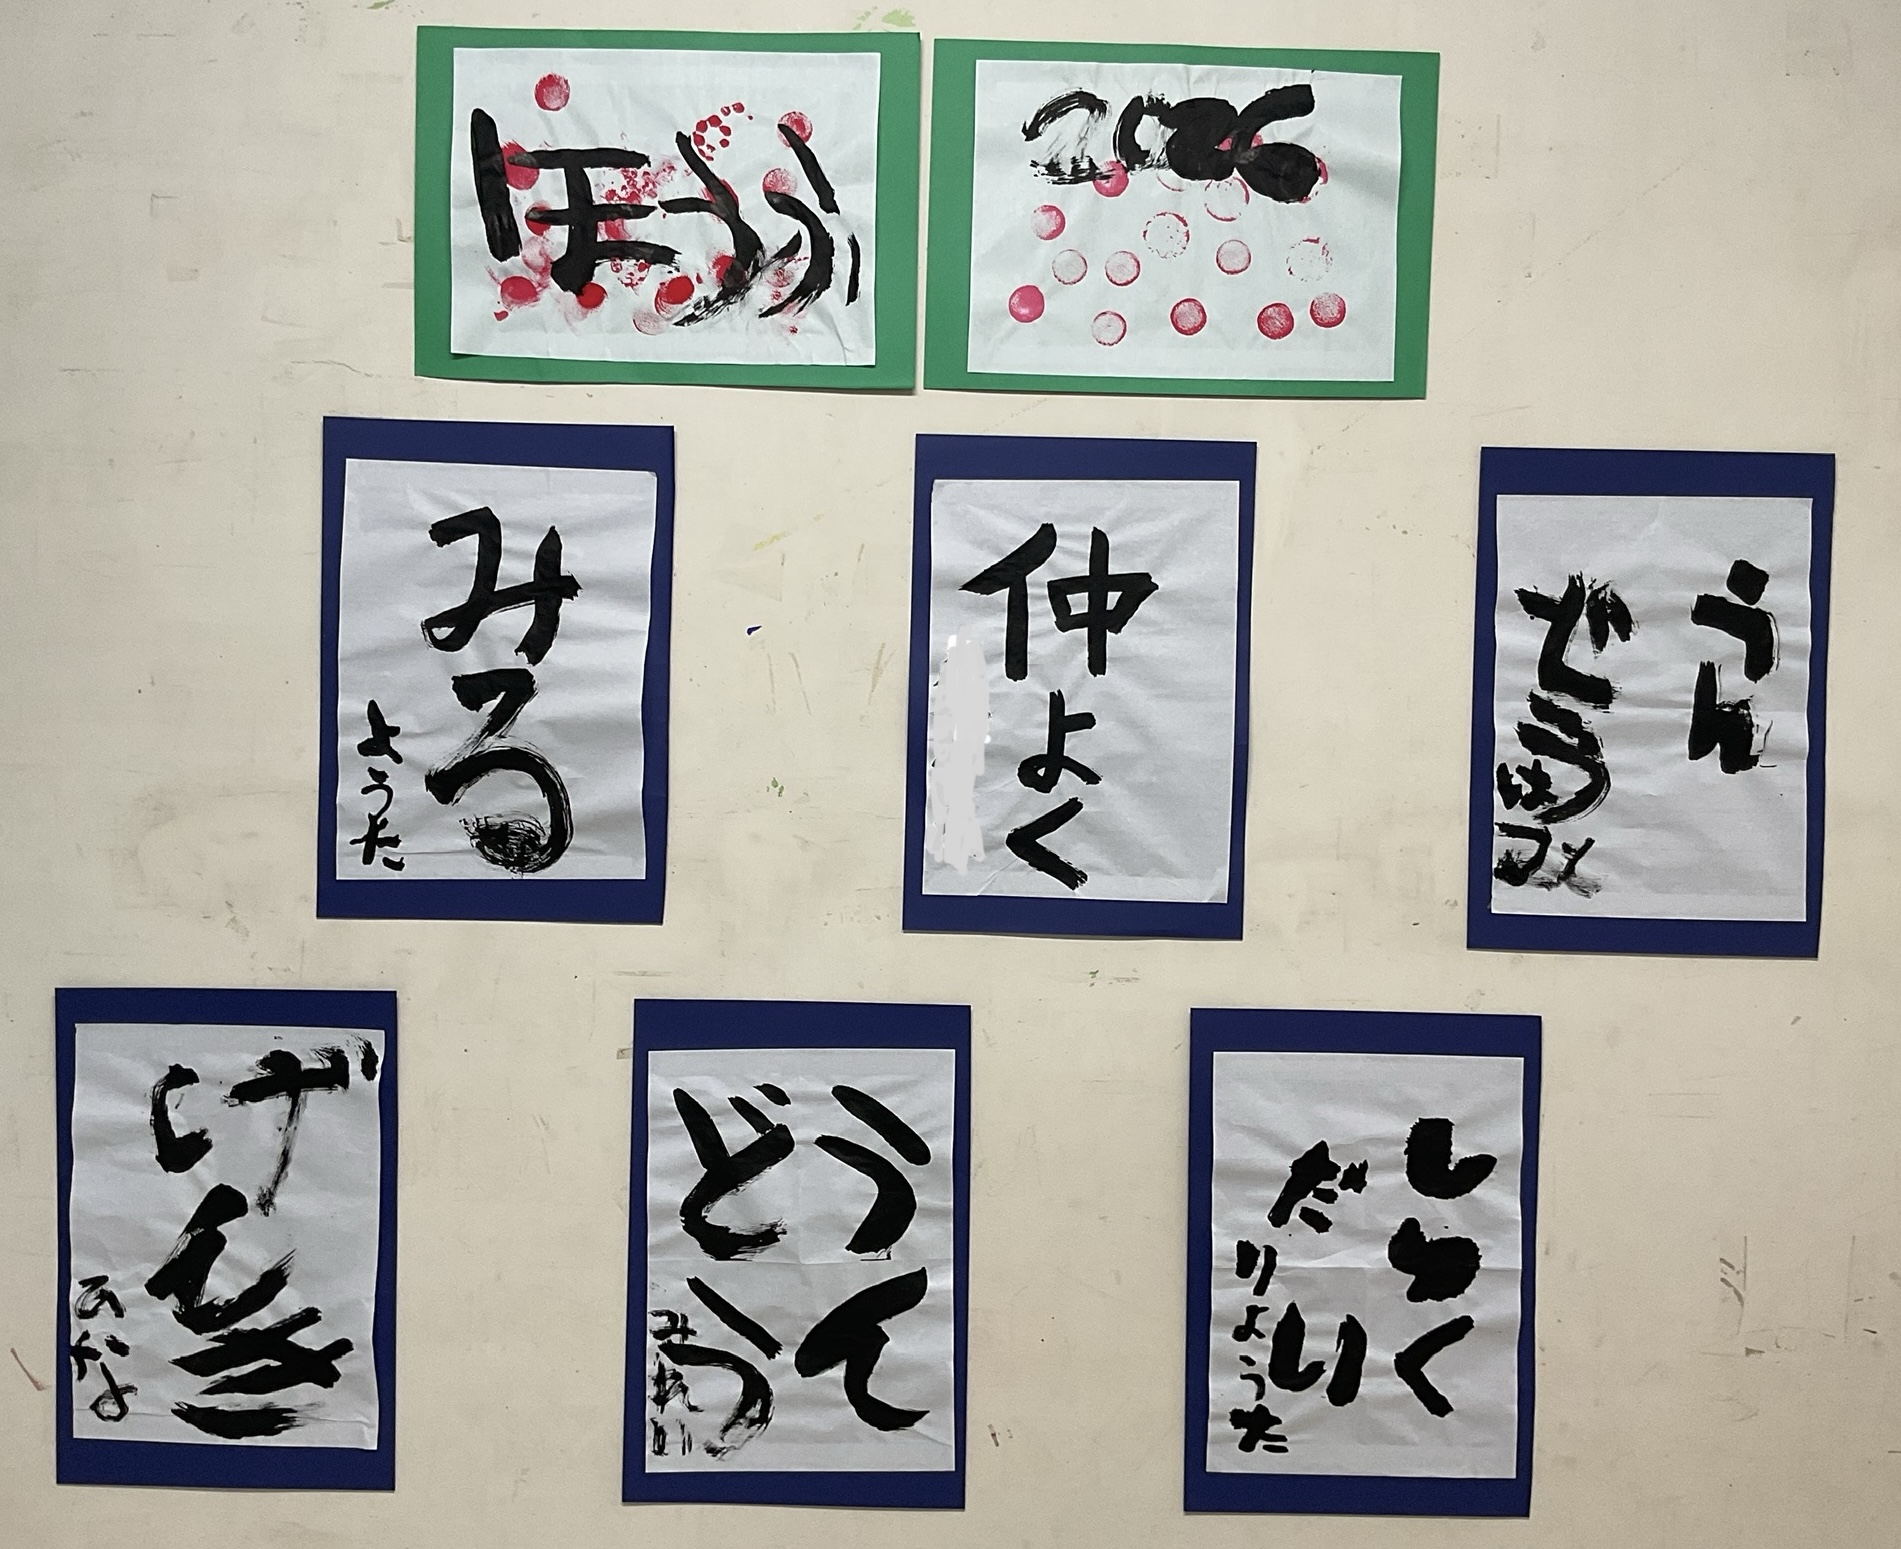 ほうふ
2026
みる
ようた
仲よく
うん
どう
げんき
ひな
うて
どう
みれい
しゅく
だい
りょうた